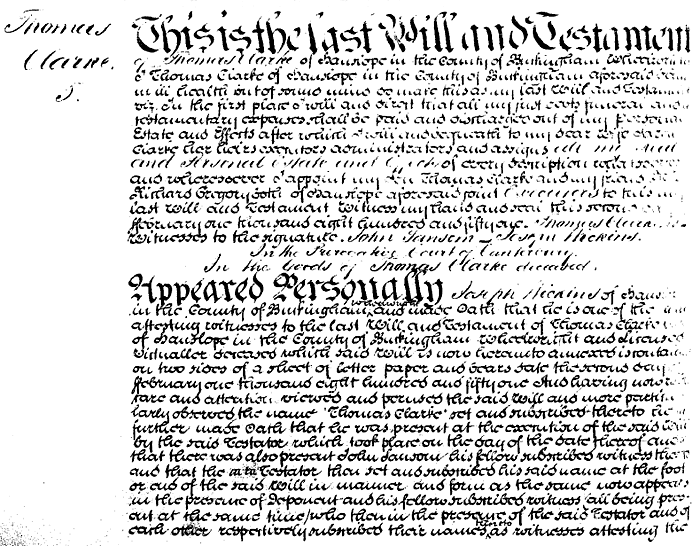 Thomas
Clarke.
5.
This is the last Will and Testament
of Thomas Clarke of Hanslope in the County of Buckingham
I Thomas Clarke of Hanslope in the County of Buckingham aforesaid being
in ill health but of sound mind do make this as my last Will and Testament
viz. In the first place I will and direct that all my just debts funeral and
testamentary expenses shall be paid and discharged out of my Personal
Estate and Effects after which I will and bequeath to my dear Wife
Clarke her heirs executors administrators and assigns all my Real
and Personal Estate and Effects of every description whatsoever
and wheresoever I appoint my Son Thomas Clarke and my friend
Richard Gregory both of Hanslope aforesaid joint Executors to this my
last Will and Testament Witness my hand and seal this second
February one thousand eight hundred and fifty one. Thomas Clarke
Witnesses to the signature John Janson _ Joseph Wickins.
In the Prerogative Court of Canterbury.
In the Goods of Thomas Clarke deceased.
Appeared Personally Joseph Wickins of
in the County of Buckingham and made Oath that he is one of the
attesting witnesses to the last Will and Testament of Thomas Clarke
of Hanslope in the County of Buckingham Wheelwright and Licensed
Victualler deceased which said Will is now hereunto annexed is
on two sides of a sheet of letter paper and bears date the second day
February one thousand eight hundred and fifty one And having now
care and attention viewed and perused the said Will and more
larly observed the name "Thomas Clarke" set and subscribed thereto he
further made Oath that he was present at the execution of the said Will
by the said Testator which took place on the day of the date thereof and
that there was also present John Janson his fellow subscribed witness
and that the Testator then set and subscribed his said name at the foot
or end of the said Will in manner and form as the same now appears
in the presence of Deponent and his fellow subscribed witness all being
ent at the same time who then in the presence of the said Testator and of
each other respectively subscribed their names thereto as witnesses attesting the